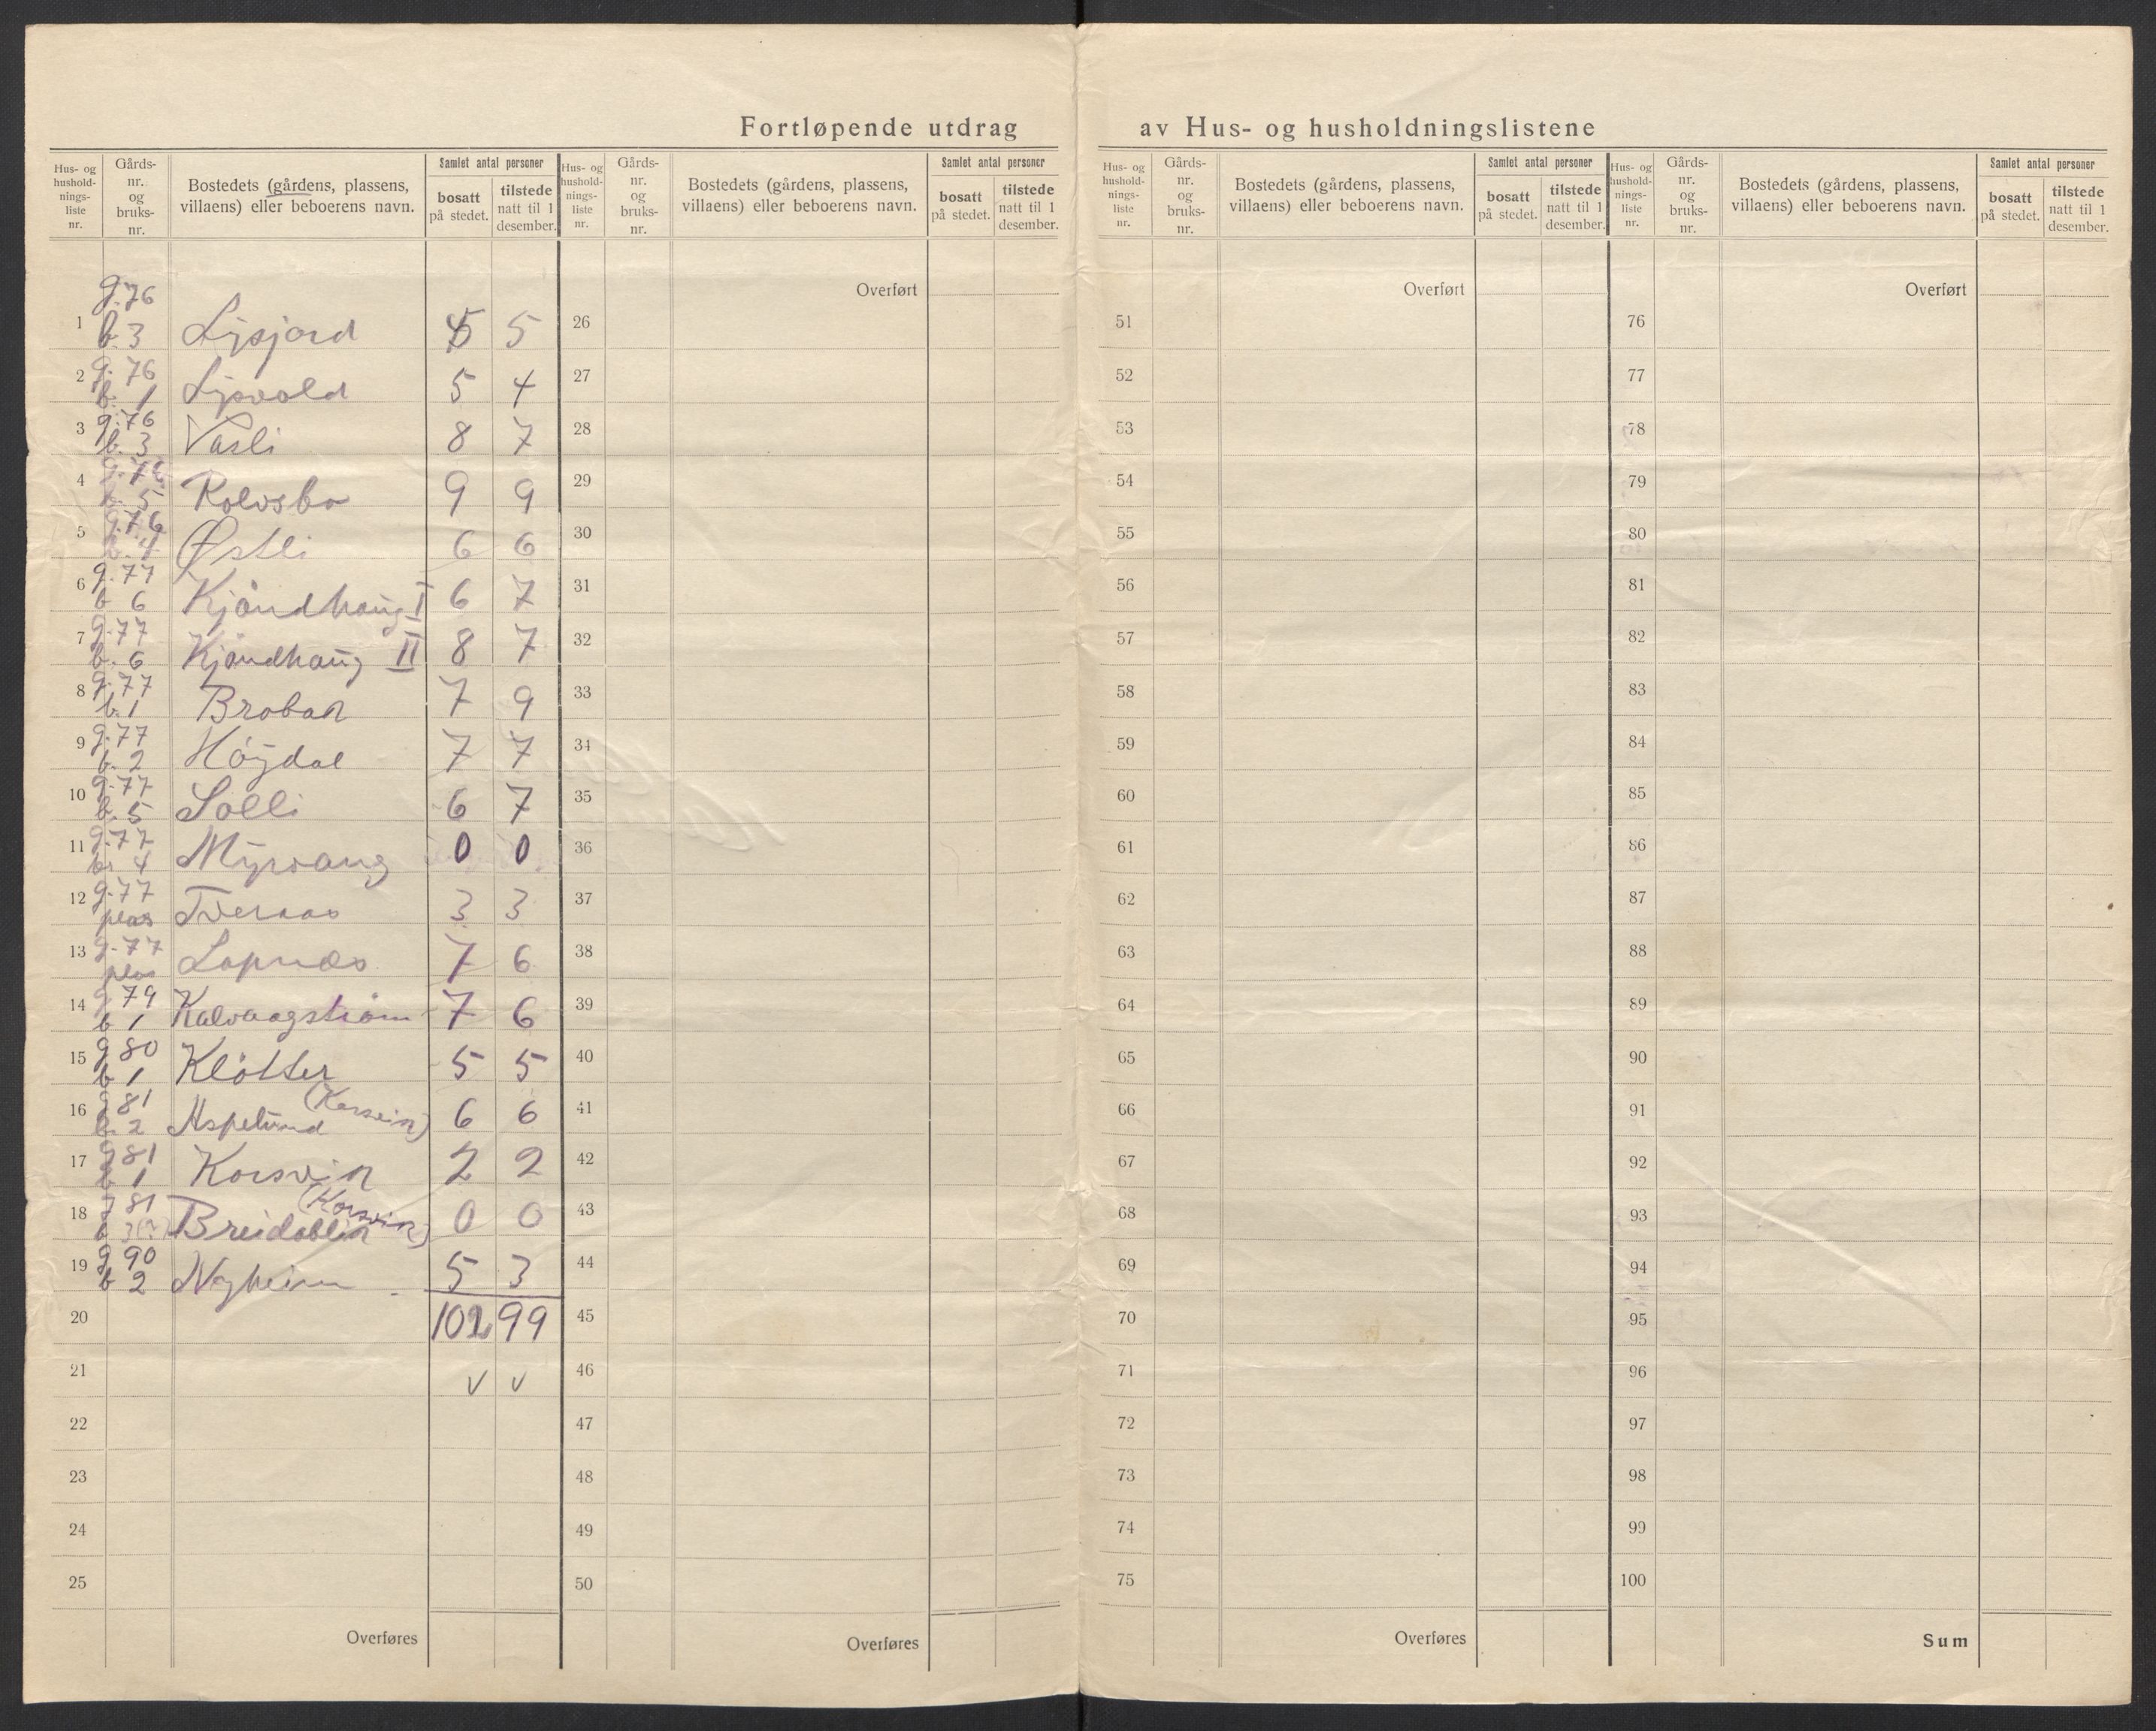 Fortløpende utdrag av Hus- og husholdningslistene
Hus- og hushold-nings-liste nr. Gårds-nr. og bruks-nr. Bostedets (gårdens, plassens, villaens) eller beboerens navn. Samlet antal personer bosatt på stedet. tilstede natt til 1 desember.
Hus- og hushold-nings-liste nr. Gårds-nr. og bruks-nr. Bostedets (gårdens, plassens, villaens) eller beboerens navn. Samlet antal personer bosatt på stedet. tilstede natt til 1 desember.
Hus- og hushold-nings-liste nr. Gårds-nr. og bruks-nr. Bostedets (gårdens, plassens, villaens) eller beboerens navn. Samlet antal personer bosatt på stedet. tilstede natt til 1 desember.
Hus- og hushold-nings-liste nr. Gårds-nr. og bruks-nr. Bostedets (gårdens, plassens, villaens) eller beboerens navn. Samlet antal personer bosatt på stedet. tilstede natt til 1 desember.
Overført Overført Overført
1 g. 76 b. 3 Lysjord 5 5 26 51 76
2 g. 76 b. 1 Lysvold 5 4 27 52 77
3 g. 76 b. 3 Vasli 8 7 28 53 78
4 g. 76 b. 5 Rolvsbo 9 9 29 54 79
5 g. 76 b. 4 Østli 6 6 30 55 80
6 g. 77 b 6 Kjöndhaug I 6 7 31 56 81
7 g. 77 b. 6 Kjöndhaug II 8 7 32 57 82
8 g. 77 b. 1 Brobak 7 9 33 58 83
9 g. 77 b. 2 Höjdal 7 7 34 59 84
10 g. 77 b. 5 Solli 6 7 35 60 85
11 g. 77 b. 4 Myrvang 0 0 36 61 86
12 g. 77 plas Tveraas 3 3 37 62 87
13 g. 77 plas Lapnæs 7 6 38 63 88
14 g 79 b 1 Kalvaagström 7 6 39 64 89
15 g 80 b 1 Klötter 5 5 40 65 90
16 g 81 b. 2 Aspelund (Korsvik) 6 6 41 66 91
17 g 81 b 1 Korsvik 2 2 42 67 92
18 g 81 b 3 (?) Breidablik (Korsvik) 0 0 43 68 93
19 g 90 b 2 Nyheim 5 3 44 69 94
20 102 99 45 70 95
21 v v 46 71 96
22 47 72 97
23 48 73 98
24 49 74 99
25 50 75 100
Overføres Overføres Overføres Sum